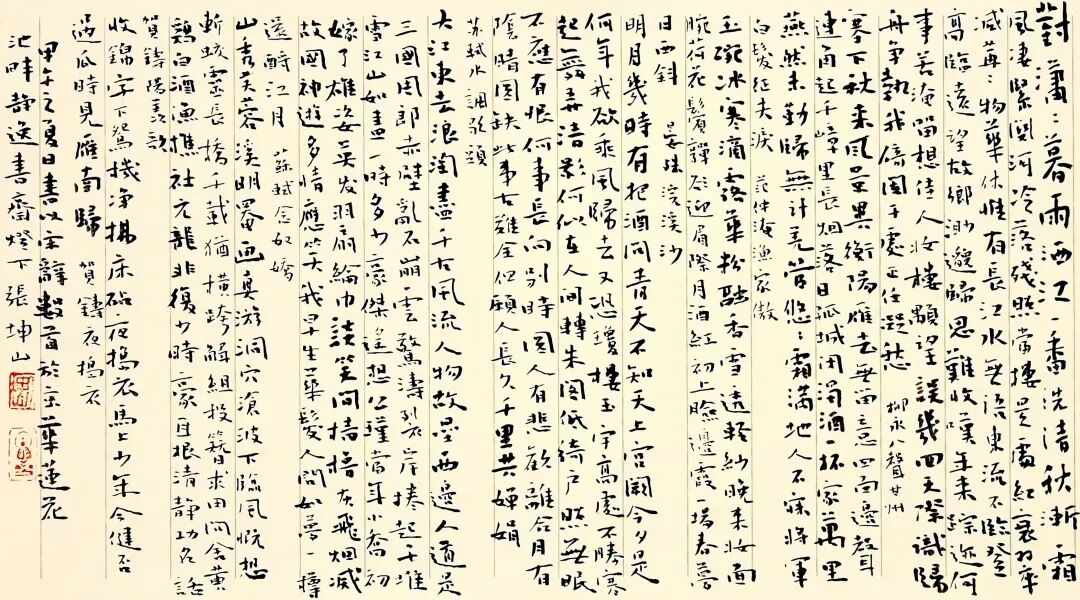 對瀟〻暮雨洒江一番洗清秋漸霜
風淒緊關河冷落殘照當樓是處紅衰翠
減苒〻物華休惟有長江水無語東流不臨登
高臨遠望故鄉渺邈歸思難收嘆年來踪迹何
事苦淹留想佳人妝樓顒望誤幾回天際識歸
舟争執我倚闌干處正恁凝愁 柳永八聲甘州
塞下秋來風景異衡陽雁去無留意四面邊聲
連角起千嶂里長烟落日孤城閉濁酒一杯家萬里
燕然未勒歸無計羌管悠〻霜滿地人不寐將軍
白髮征夫淚 范仲淹漁家傲
玉碗冰寒滴露華粉融香雪透輕紗晚來妝面
勝荷花鬢嚲欲迎眉際月酒紅初上臉邊霞一場春夢
日西斜 晏殊浣溪沙
明月幾時有把酒問青天不知天上宮闕今夕是
何年我欲乘風歸去又恐瓊樓玉宇高處不勝寒
起舞弄清影何似在人間轉朱閣低綺户照無眠
不應有恨何事長向别時圓人有悲歡離合月有
陰晴圓缺此事古難全但願人長久千里共嬋娟
蘇軾水調歌頭
大江東去浪淘盡千古風流人物故壘西邊人道是
三國周郎赤壁亂石崩雲驚濤裂岸捲起千堆
雪江山如畫一時多少豪傑遥想公瑾當年小喬初
嫁了雄姿英发羽扇綸巾談笑間檣櫓灰飛烟滅
故國神遊多情應笑我早生華髮人間如夢一樽
還酹江月 蘇軾念奴嬌
山秀芙蓉溪明罨画真游洞穴滄波下臨風慨想
斬蛟靈長橋千載猶橫跨解組投簪求田問舍黄
鷄白酒漁樵社元龍非復少時豪耳根清静功名話
賀鑄陽羨歌
收錦字下鴛機净拂床砧夜擣衣馬上少年今健否
過瓜時見雁南歸 賀鑄夜擣衣
甲午之夏日書以宋辭數首於京華蓮花
池畔静逸書齋燈下張坤山